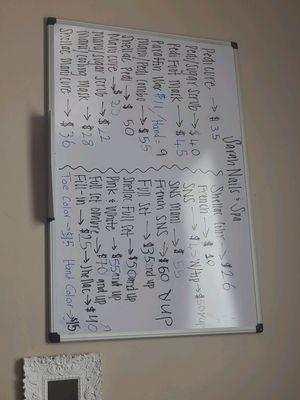 Sarah Nails & Spa
Pedicure → $35
Pedi/sugar scrub → $40
Pedi Foot Mask → $45
Paraffin Wax $11/Hand = 9
Mani/Pedi Combo → $55
Shellac Pedi → $50
Manicure → $20
Mani/sugar scrub → $22
Mani/cooling mask → $28
Shellac Manicure → $36
Shellac → $26
French → $10
SNS → $45 w/tip → $50 &up
SNS Mani → $55
French SNS → $60 & up
Full Set → $35 and up
Shellac Full Set → $50 and up
Pink & White → $55 and up
Full Set ombre → $70 and up
Fill-in → $25 → Shellac → $40
Toe Color → $15 Hand Color → $15